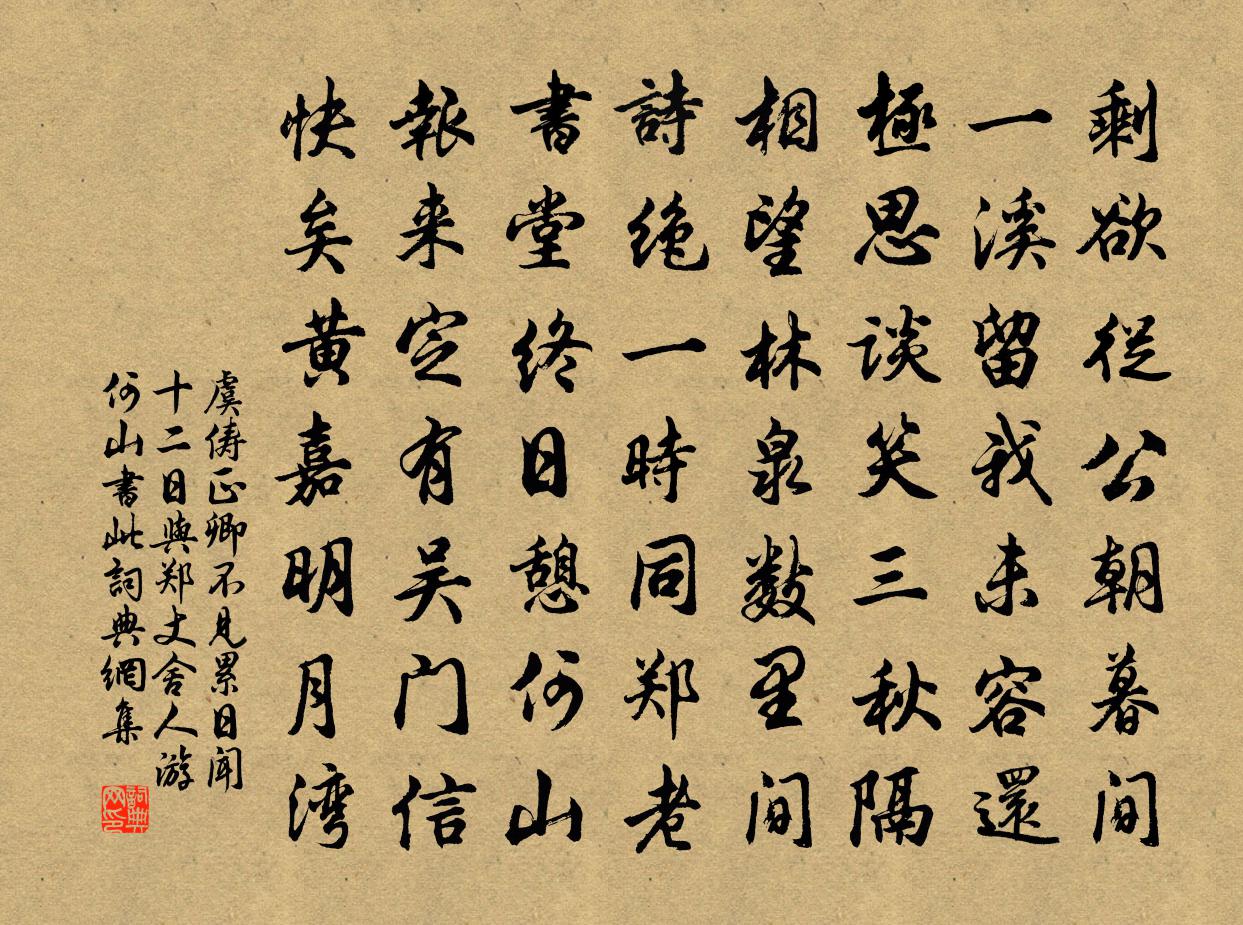 剩欲從公朝暮间
一溪留我未容還
極思談笑三秋隔
相望林泉數里间
詩絶一時同郑老
書堂終日憩何山
報来定有吴门信
快矣黄嘉明月湾
虞俦正卿不見累日闻
十二日與郑丈舍人游
何山書此詞典網集
詞典网印